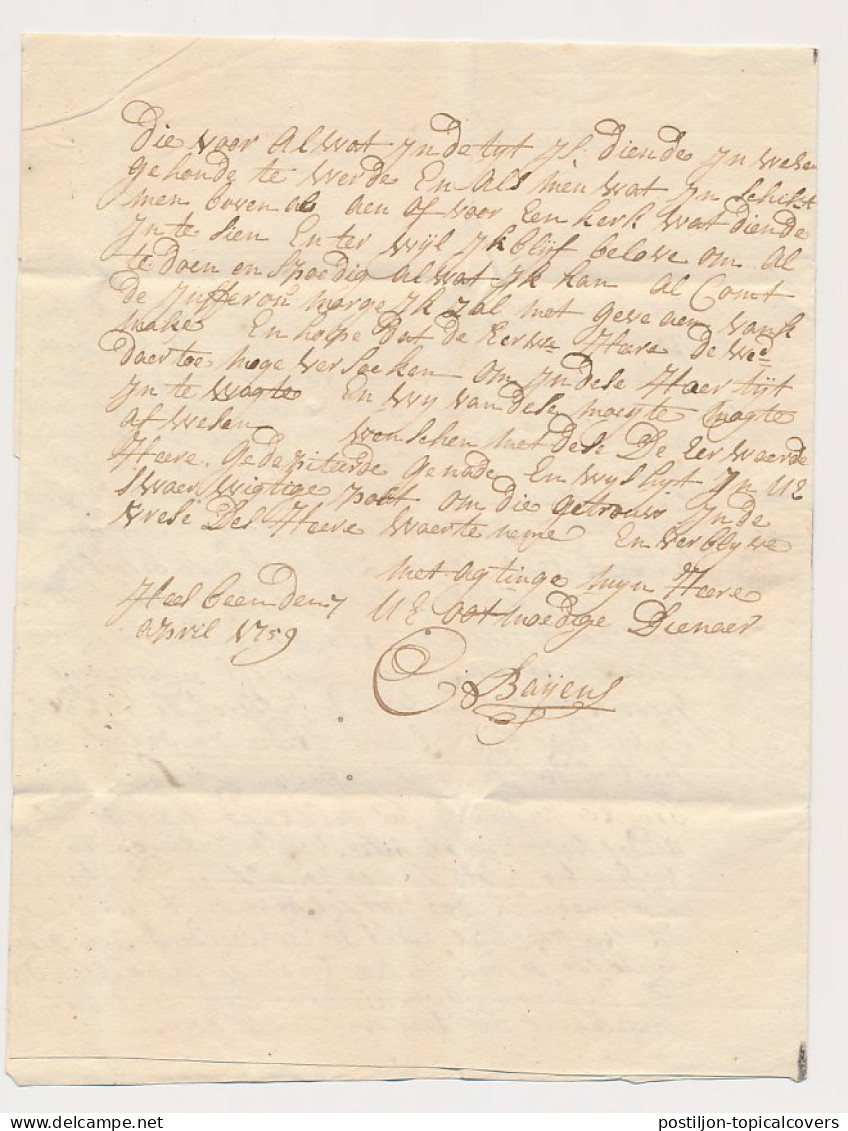 Die voor Al wat Jn de tyt JS. diende Jn wesen
gehoude te werde En Als men wat Jn schikt
men boven al aen of voor Een kerk wat diende
Jn te sien En ter wyl Jk blyf belove om Al
te doen en spoedig Al wat Jk kan Al Comt
de Jufferou marge Jk zal met geve aen vank
make En hoope dat de Eerwe Heere De Wed
daer toe moge versoeken om Jn dese Haer tyt
Jn te wagte En wy van dese moeyte mogte
Af wesen Wenschen met dese De Eerwaerde
Heere. gedepiteerde genade En wysheyt Jn UE
swaer wigtige post om die getrouw Jn de
vrese Des Heere waerte neme En verblywe
met agtinge Myn Heere
Heel been den 7 UE oot moedige Dienaer
April 1759
C: Baijens
delcampe.net
postiljon-topicalcovers